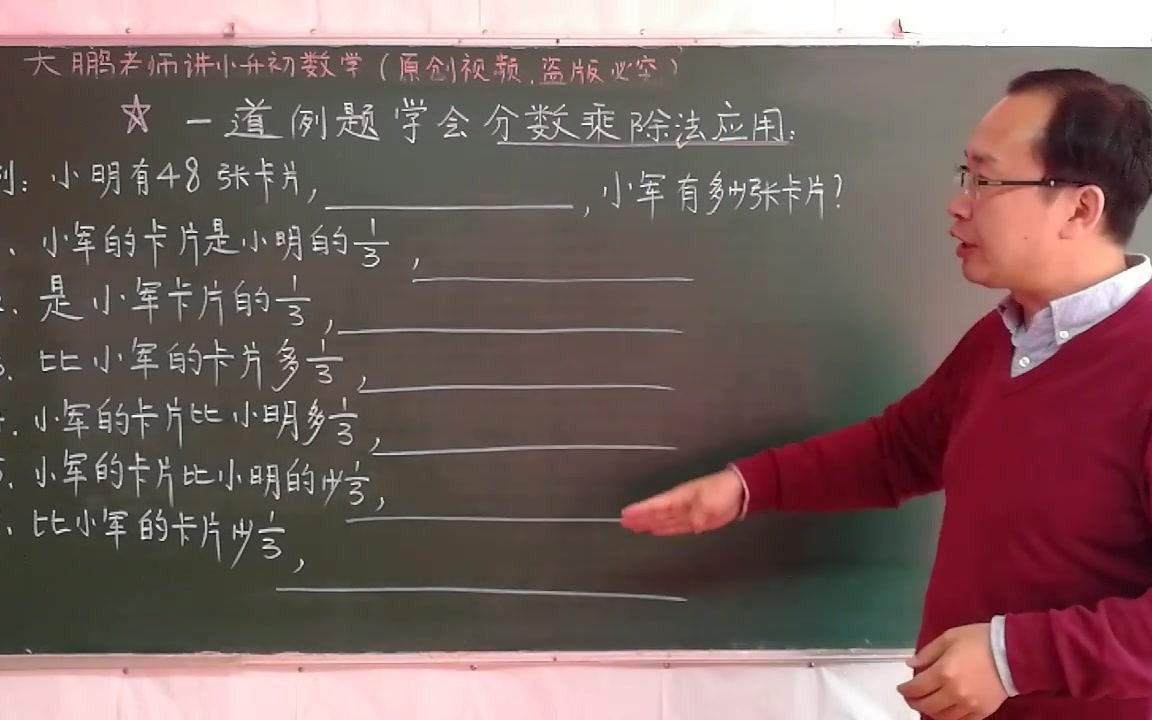 大鹏老师讲小升初数学（原创视频,盗版必究）
☆ 一道例题学会分数乘除法应用:
例: 小明有48张卡片, ________ , 小军有多少张卡片?
、小军的卡片是小明的1/3, ________
、是小军卡片的1/3, ________
3、比小军的卡片多1/3, ________
4. 小军的卡片比小明多1/3, ________
5. 小军的卡片比小明的少1/3, ________
、比小军的卡片少1/3, ________